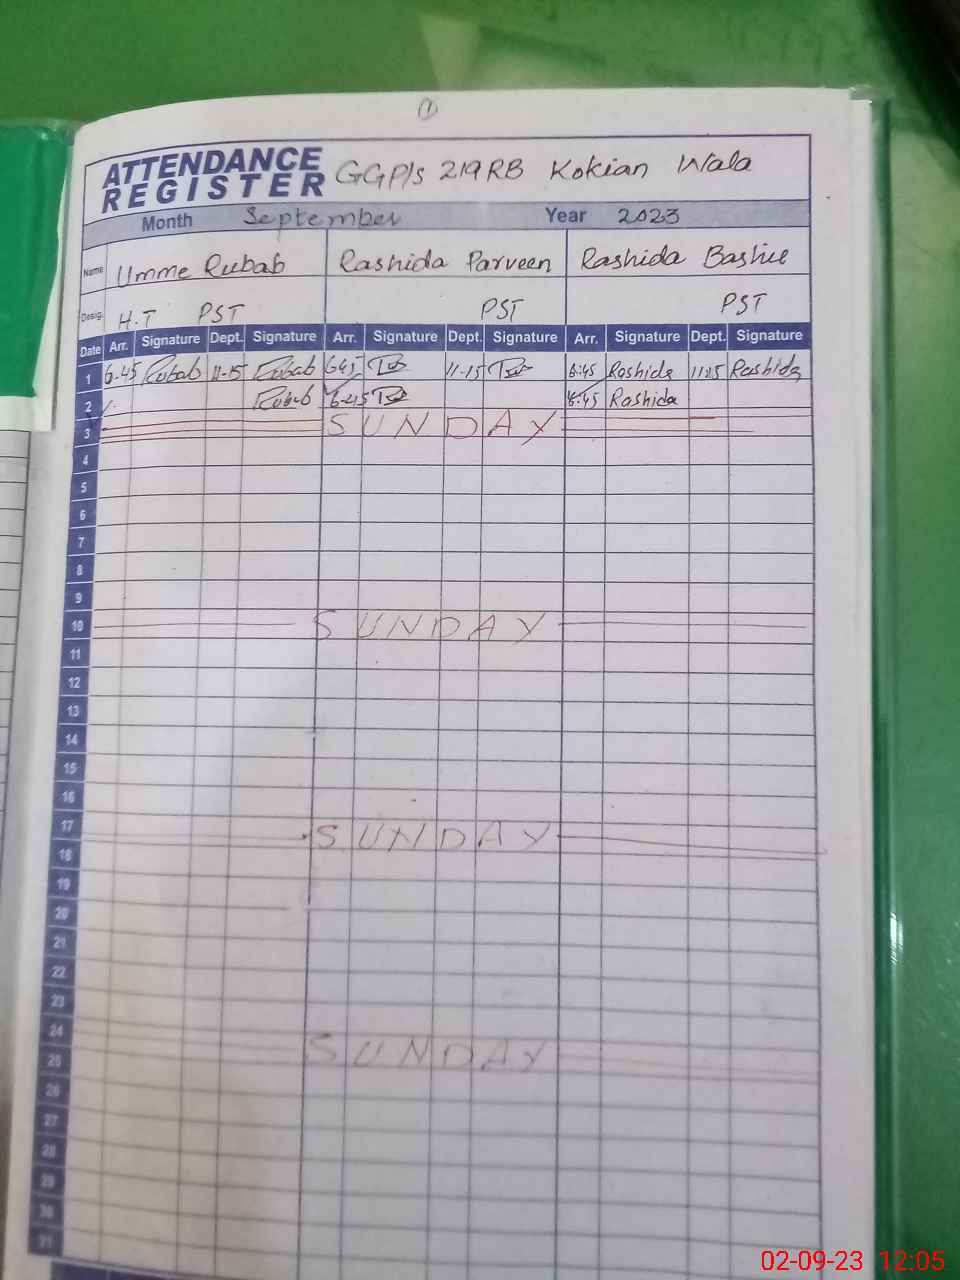 1
ATTENDANCE REGISTER GGP/s 219RB Kokian Wala
Month September Year 2023
Name Umme Rubab Rashida Parveen Rashida Bashir
Desig. H.T PST PST PST
Date Arr. Signature Dept. Signature Arr. Signature Dept. Signature Arr. Signature Dept. Signature
1 6.45 Rubab 11-15 Rubab 645 11-15 6:45 Rashida 1115 Rashida
2 Rubab 6-45 6:45 Rashida
3 SUNDAY
4
5
6
7
8
9
10 SUNDAY
11
12
13
14
15
16
17 SUNDAY
18
19
20
21
22
23
24 SUNDAY
25
26
27
28
29
30
31
02-09-23 12:05